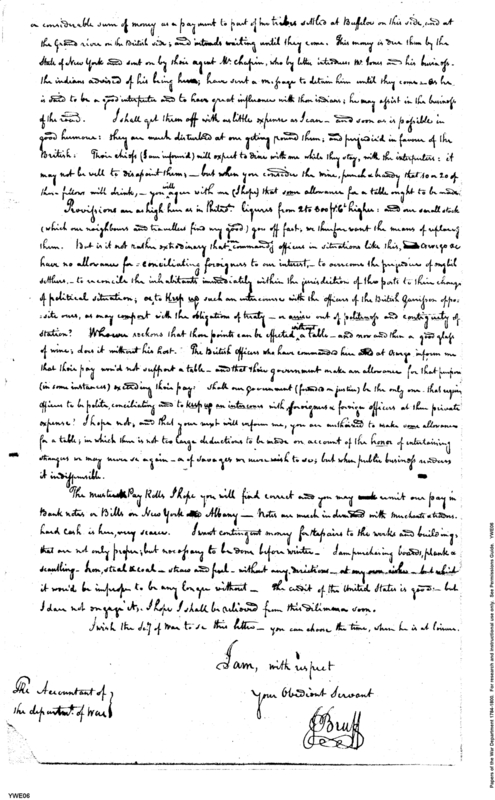 a considerable sum of money as a payment to part of her tribes settled at Buffalow on this side, and at
the Grand river on the British side; and intends waiting until they come. This money is due them by the
State of New York and sent on by their agent Mr. Chapin, who by letter introduces Mr Jones and his business.
the indians advised of his being here; have sent a message to detain him until they come — As he
is said to be a good interpreter and to have great influence with those indians; he may assist in the business
of the road. I shall get them off with as little expense as I can — and soon as is possible in
good humour: they are much disturbed at our geting round them; and prejudic'd in favour of the
British. Their chiefs (I am informed) will expect to Dine with me while they stay, with the interpreters: it
may not be well to disapoint them; — but when you consider the wine, punch & brandy that 10 or 20 of
these fellows will drink, — you will agree with me (I hope) that some allowance for a table ought to be made.
Provissions are as high here as in Philada. liquors from 2 to 300 pr. Ct. higher: and our small stock
(which our neighbours and travellers find very good) goes off fast, we therefore want the means of replacing
them. But is it not rather extraordinary that commandg officers in situations like this, and Oswego &c
have no allowance for conciliating foreigners to our interest, — to overcome the prejudices of english
settlers, — to reconcile the inhabitants immediately within the jurisdiction of the posts to their change
of political situation; or, to keep up such an intercourse with the officers of the British Garrison oppo-
site ours, as may comport with the obligation of treaty — or arises out of politeness and contiguity of
station? Whoever reckons that these points can be effected, without a table — and now and then a good glass
of wine; does it without his host. The British officers who have commanded here and at Oswego inform me
that their pay wou'd not support a table — and that their government make an allowance for that purpose
(in some instances) exceeding their pay: Shall our government (founded on justice) be the only one that requires
officers to be polite, conciliating and to keep up an intercourse with foreigners & foreign officers at their private
expense? I hope not, and that your next will inform me, you are authorised to make some allowance
for a table; in which there is not too large deductions to be made on account of the honor of entertaining
strangers we may never see again — or of savages we never wish to see; but when public business renders
it indispensible.
The musters & Pay Rolls I hope you will find correct and you may remit our pay in
Bank notes or Bills on New York or Albany — Notes are much in demand with merchants & traders.
hard cash is here, very scarce. I want contingent money for Repairs to the works and buildings,
that are not only proper, but necessary to be done before winter — I am purchasing boards, plank &
scantling — Iron, steel & coal — straw and fuel — without any directions — at my own risk — but which
it wou'd be improper to be any longer without — the credit of the United States is good — but
I dare not engage it; I hope I shall be relieved from this dilimma soon.
I wish the Secy of War to see this letter — you can choose the time, when he is at leisure.
I am, with respect
Your Obedient Servant
JBruff
The Accountant of
the departmt. of War
YWE06
Papers of the War Department 1784-1800. For research and instructional use only. See Permissions Guide. YWE06